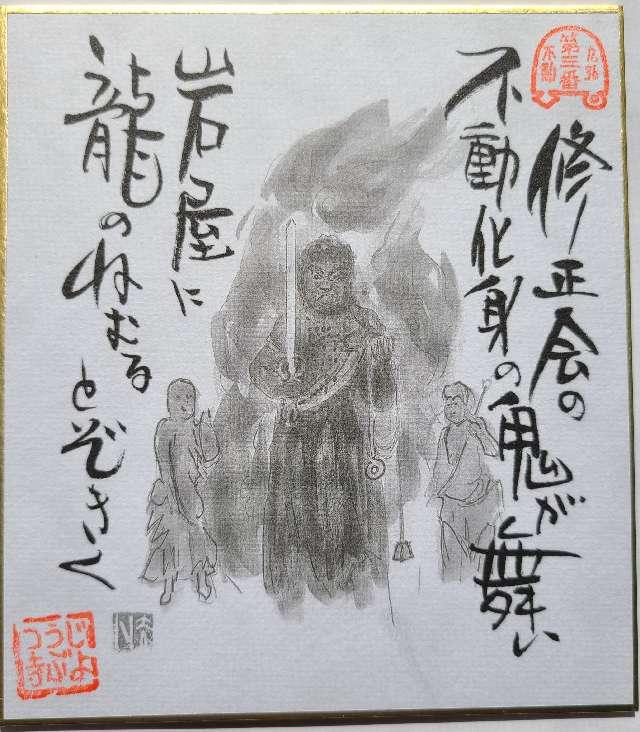 第三番
不動
修正会の
不動化身の鬼が舞い
岩屋に
龍のねむる
とぞきく
じょうごう寺